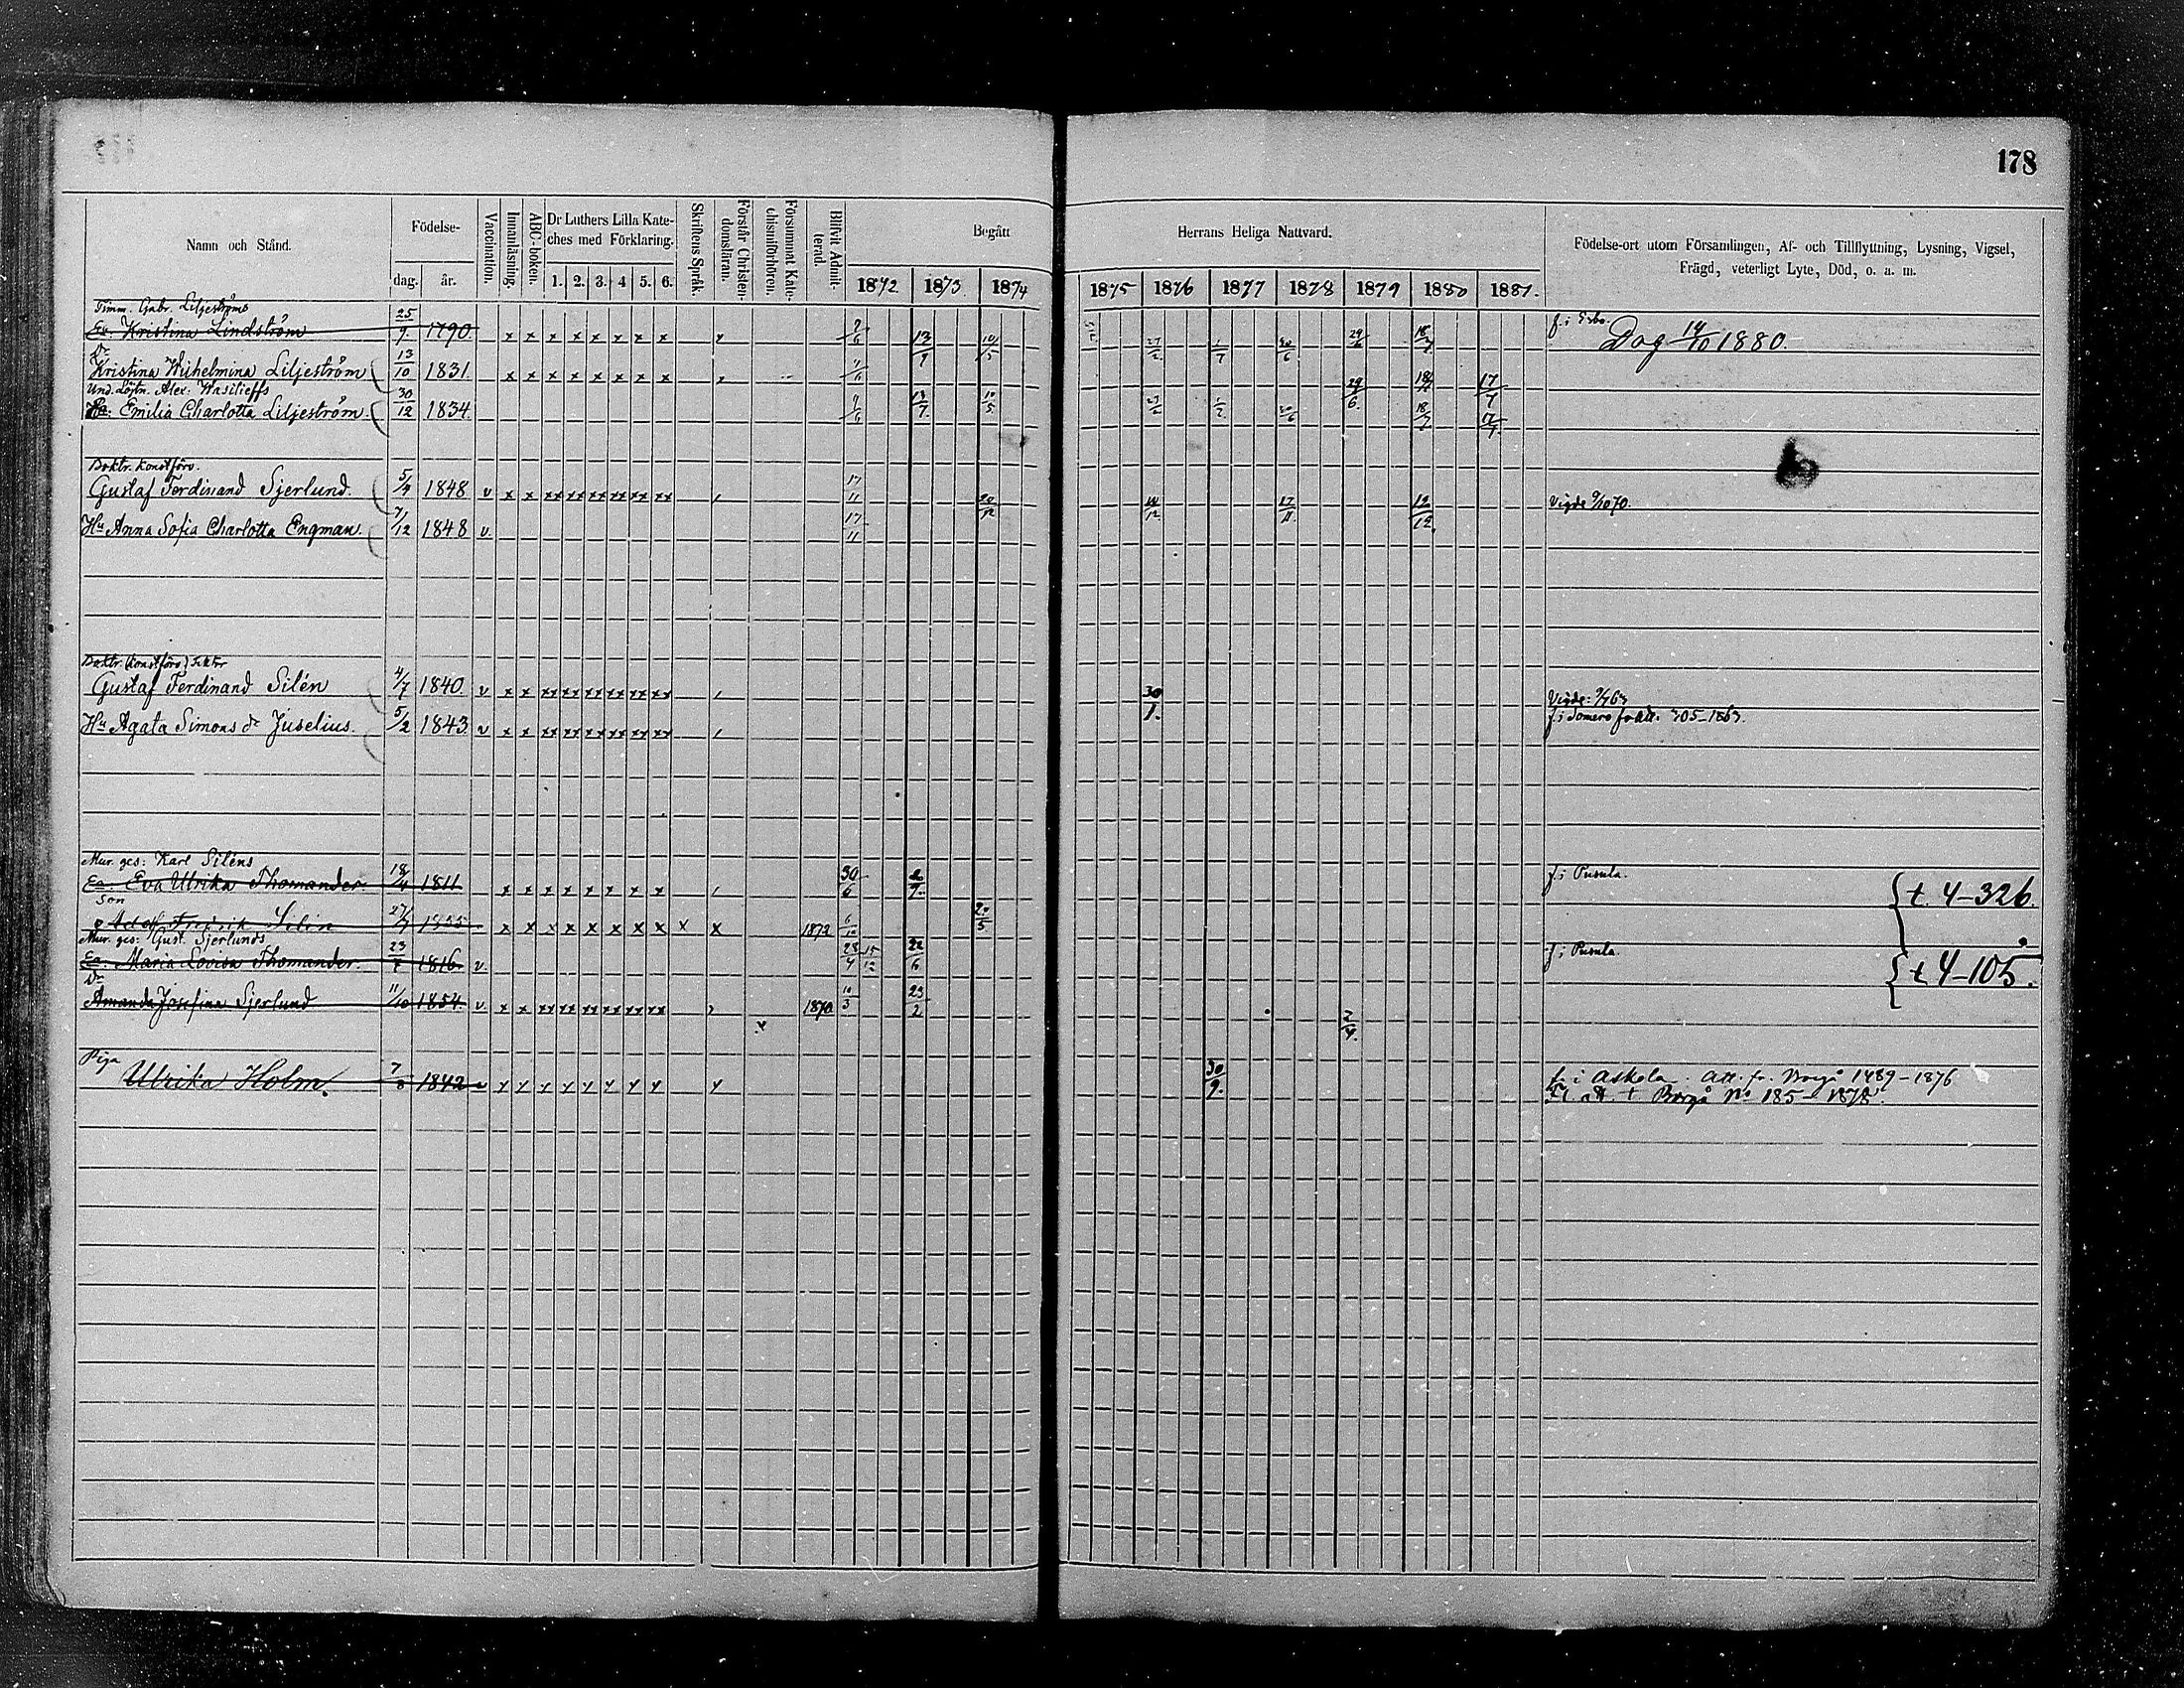 178
Namn och Stånd.
Födelse-
dag. år.
Vaccination.
Innanläsning.
ABC-boken.
Dr Luthers Lilla Kate-
ches med Förklaring.
1. 2. 3. 4 5. 6.
Skriftens Språk.
Förstår Christen-
domsläran.
Försummat Kate-
chismiförhören.
Blifvit Admit-
terad.
Begått Herrans Heliga Nattvard.
1872 1873. 1874 1875 1876 1877 1878 1879 1880 1881.
Födelse-ort utom Församlingen, Af- och Tillflyttning, Lysning, Vigsel,
Frägd, veterligt Lyte, Död, o. a. m.
Timm. Gabr. Liljeströms
Ea. Kristina Lindström 25/9. 1790. x x x x x x x x 13/7 18/7 f. i Esbo.
Dog 14/10 1880.
Dr
Kristina Wilhelmina Liljeström 13/10 1831 x x x x x x x x 29/6. 17/7
Und. Löjtn. Alex. Wasilieffs
Ea. Emilia Charlotta Liljeström. 30/12 1834. 9/6 13/7. 10/5 18/7 17/7.
Boktr. Konstförv.
Gustaf Ferdinand Sjerlund. 1848 v x x xx xx xx xx xx xx 17/11 20/12 17/11 12/12 Vigde 9/10 70.
Hu Anna Sofia Charlotta Engman. 7/12 1848 v. 17/11
Boktr. (Konstförv)
Gustaf Ferdinand Silén 4/7 1840. v x x xx xx xx xx xx xx 30/1. Vigde:
Hu Agata Simons dr Juselius. 5/2 1843. v x x xx xx xx xx xx xx f. i Somero fr att. 305-1863.
Mur. ges: Karl Siléns
Ea: Eva Ulrika Thomander. 18/4 1811 x x x x x x x x 30/6 f. i Pusula.
{ t. 4-326.
Son
Adolf Fredrik Silén 1855 x x x x x x x x x x 1872 6/10 20/5
Mur. ges: Gust. Sjerlunds
Ea: Maria Lovisa Thomander. 23/7 1816 v. 28/4 15/12 22/6 f. i Pusula.
{ t 4-105.
Dr
Amanda Josefina Sjerlund 11/10 1854. v. x x xx xx xx xx xx xx 1870 10/3 23/2 x 2/4.
Piga
Ulrika Holm. 1842 30/9. f. i Askola. Att. fr. Borgå 1489-1876
Borgå No 185-1878.